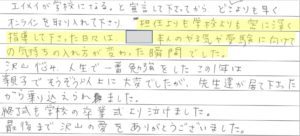 エイメイが学校になる、と宣言して下さってから どこよりも早く
オンラインを取り入れて下さり 担任よりも学校よりも密に深く
指導して下さった日々は 本人のやる気や受験に向けて
の気持ちの入れ方が変わった瞬間でした。
沢山悩み、人生で一番勉強をした この1年は
親子でもそうぞう以上に大変でしたが、先生達が居て下さった
から乗り込えられました。
終了式も学校の卒業式より泣けました。
最後まで沢山の愛を ありがとうございました。